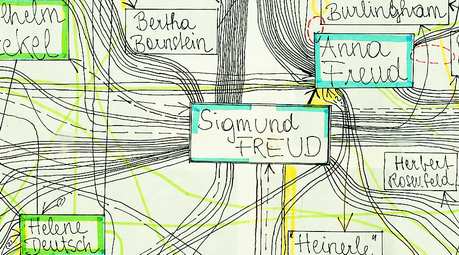 Burlingham
Bertha
Bornstein
Anna
Freud
Sigmund
FREUD
Herbert
Rosenfeld
Helene
Deutsch
"Heinerle"